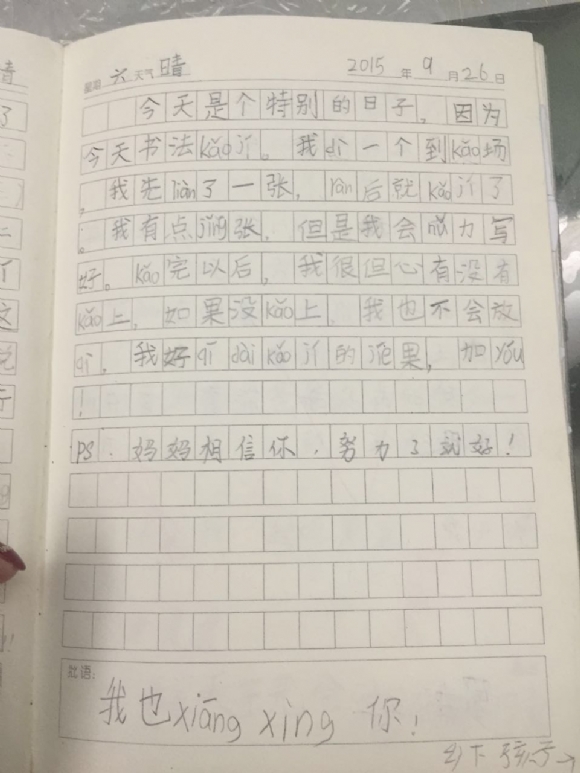 星期 六 天气 晴 2015 年 9 月 26 日
今天是个特别的日子。因为
今天书法kǎo jí。我dì一个到kǎo场
。我先liàn了一张，rán后就kǎo jí了
。我有点jǐng张，但是我会努力写
好。kǎo完以后，我很但心有没有
kǎo上，如果没kǎo上，我也不会放
qì，我好qī dài kǎo jí的jié果，加yóu
！
PS：妈妈相信你，努力了就好！
批语：
我也xiāng xìng 你！
乡下孩子→